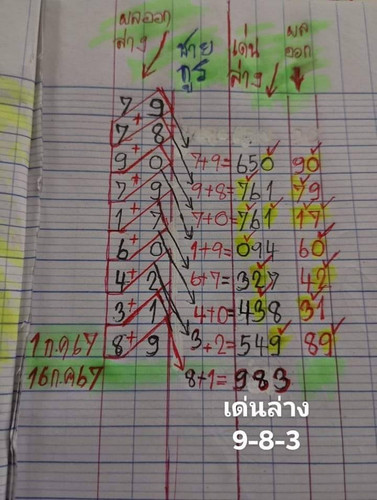 ผลออก ล่าง
ชาย กูร
เด่น ล่าง
ผล ออก
7 9
7 + 8
9 + 0 7+9= 650 90
7 + 9 9+8= 761 79
1 + 7 7+0= 761 17
6 + 0 1+9= 094 60
4 + 2 6+7= 327 42
3 + 1 4+0= 438 31
1ก.ค67 8 + 9 3+2= 549 89
16ก.ค67 8+1= 983
เด่นล่าง
9-8-3